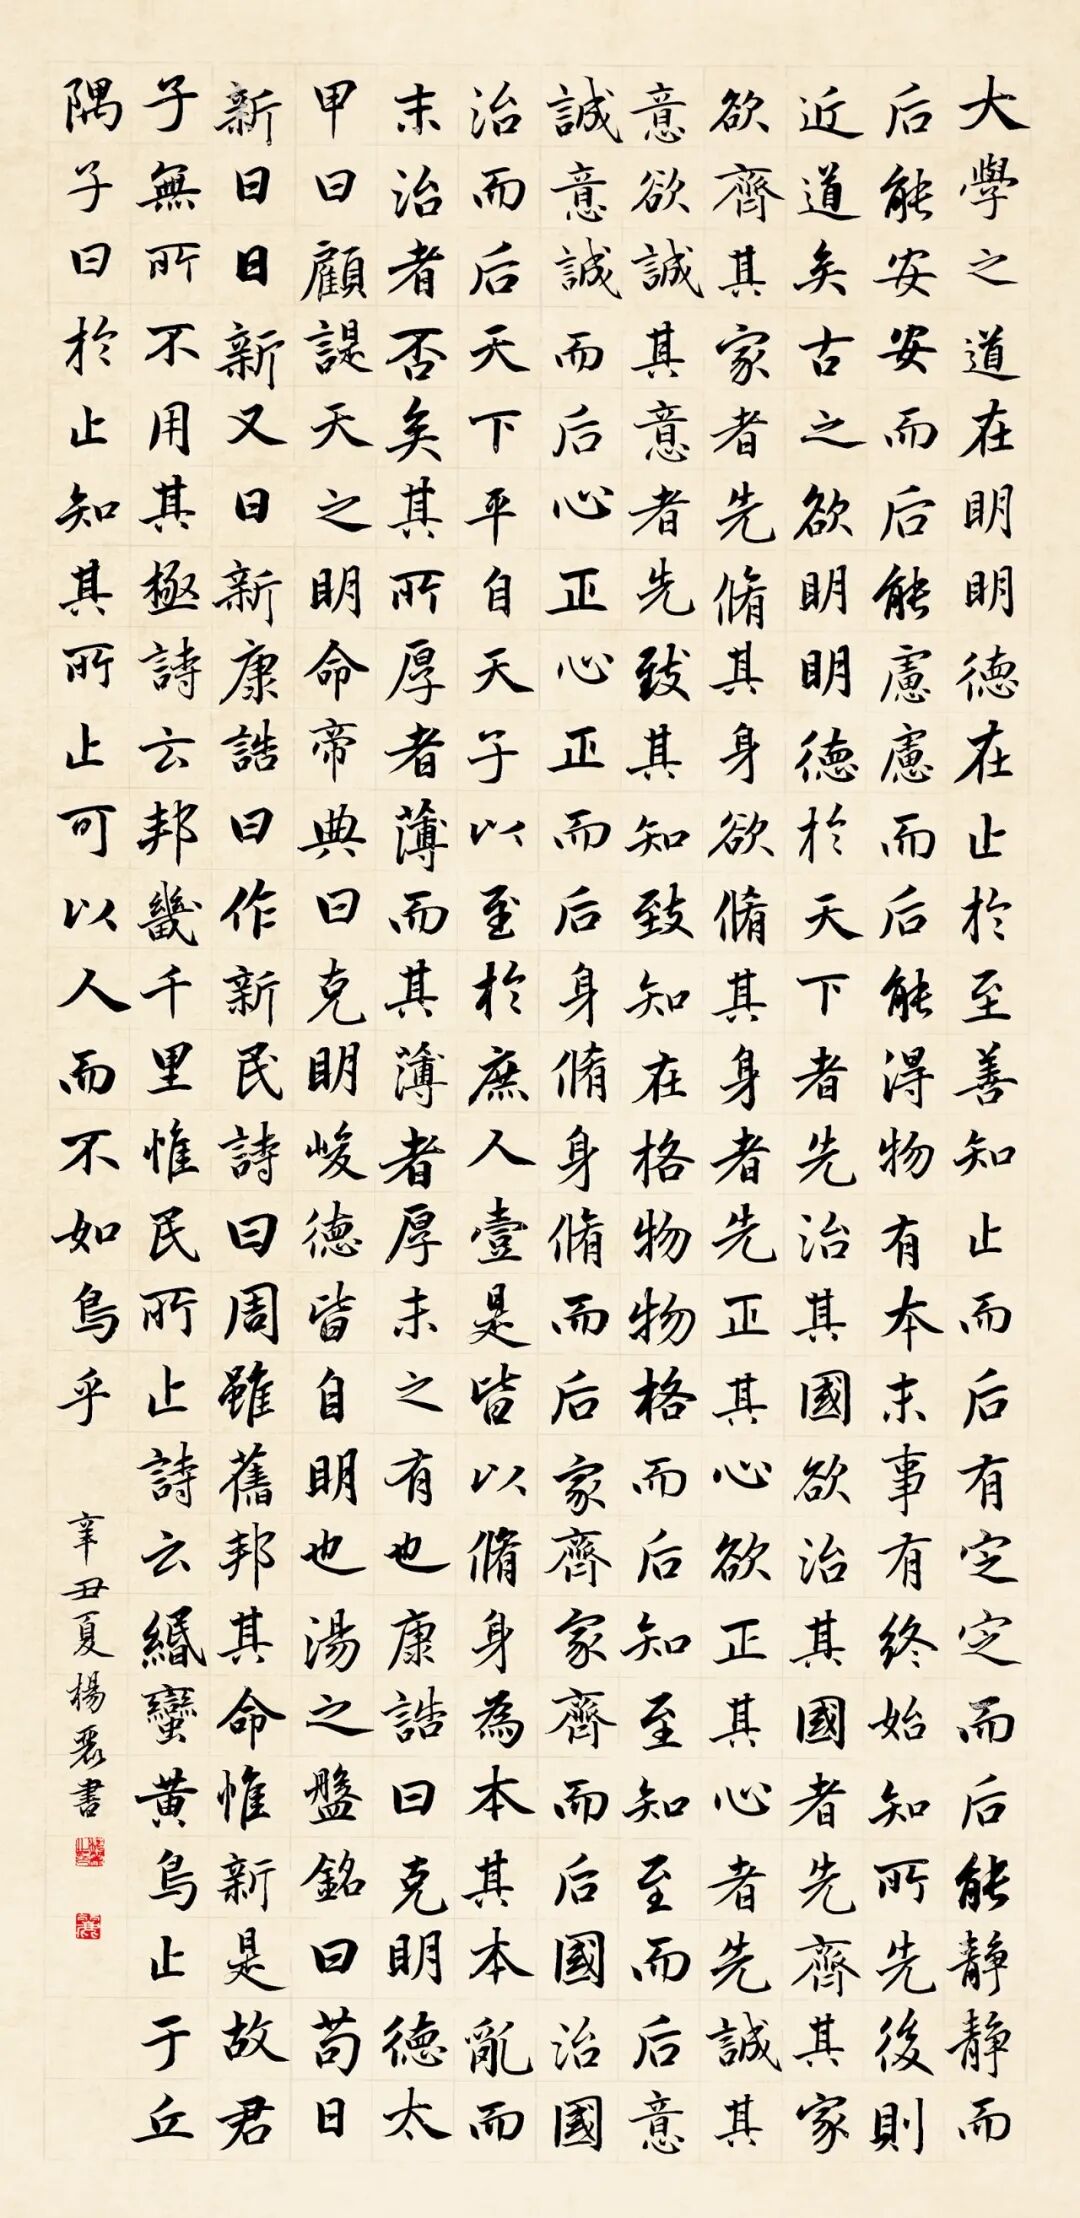 大學之道在明明德在止於至善知止而后有定定而后能靜靜而
后能安安而后能慮慮而后能得物有本末事有終始知所先後則
近道矣古之欲明明德於天下者先治其國欲治其國者先齊其家
欲齊其家者先脩其身欲脩其身者先正其心欲正其心者先誠其
意欲誠其意者先致其知致知在格物物格而后知至知至而后意
誠意誠而后心正心正而后身脩身脩而后家齊家齊而后國治國
治而后天下平自天子以至於庶人壹是皆以脩身為本其本亂而
末治者否矣其所厚者薄而其薄者厚未之有也康誥曰克明德太
甲曰顧諟天之明命帝典曰克明峻德皆自明也湯之盤銘曰苟日
新日日新又日新康誥曰作新民詩曰周雖舊邦其命惟新是故君
子無所不用其極詩云邦畿千里惟民所止詩云緡蠻黃鳥止于丘
隅子曰於止知其所止可以人而不如鳥乎
辛丑夏楊震書